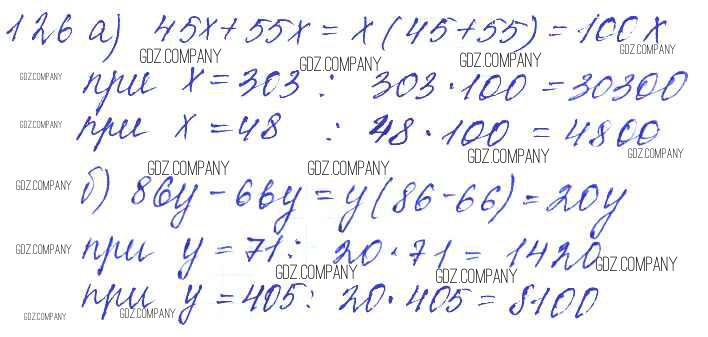 126 а) 45x + 55x = x (45 + 55) = 100x
GDZ.COMPANY GDZ.COMPANY GDZ.COMPANY GDZ.COMPANY
GDZ.COMPANY при x = 303 : 303 · 100 = 30300
GDZ.COMPANY при x = 48 : 48 · 100 = 4800
GDZ.COMPANY GDZ.COMPANY
GDZ.COMPANY GDZ.COMPANY
GDZ.COMPANY б) 86y - 66y = y (86 - 66) = 20y
GDZ.COMPANY при y = 71 : 20 · 71 = 1420 GDZ.COMPANY
GDZ.COMPANY GDZ.COMPANY
при y = 405 : 20 · 405 = 8100
GDZ.COMPANY GDZ.COMPANY